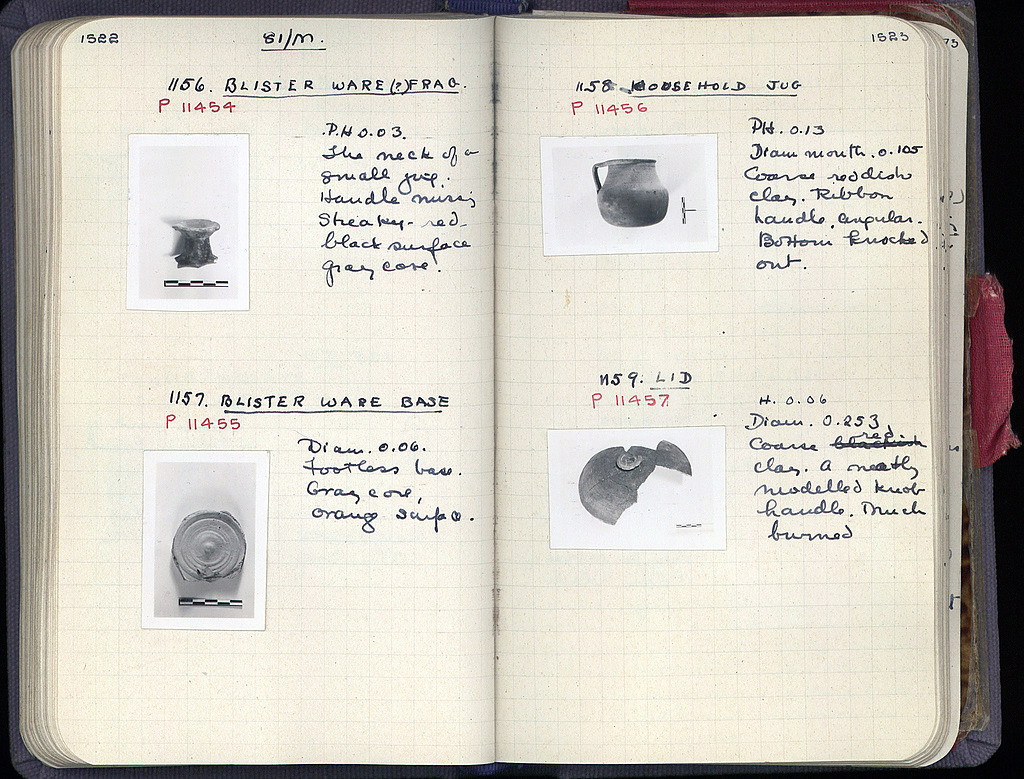 1522
81/M.
1156. BLISTER WARE(?)FRAG.
P 11454
P.H 0.03.
The neck of a
small jug.
Handle missing
Streaky-red-
black surface
gray core.
1157. BLISTER WARE BASE
P 11455
Diam. 0.06.
Footless base.
Gray core,
orange surface.
1523
1158 HOUSEHOLD JUG
P 11456
PH. 0.13
Diam mouth. 0.105
Coarse reddish
clay. Ribbon
handle, angular.
Bottom knocked
out.
1159. LID
P 11457
H. 0.06
Diam. 0.253
red
Coarse blackish
clay. A neatly
modelled knob
handle. Much
burned
73